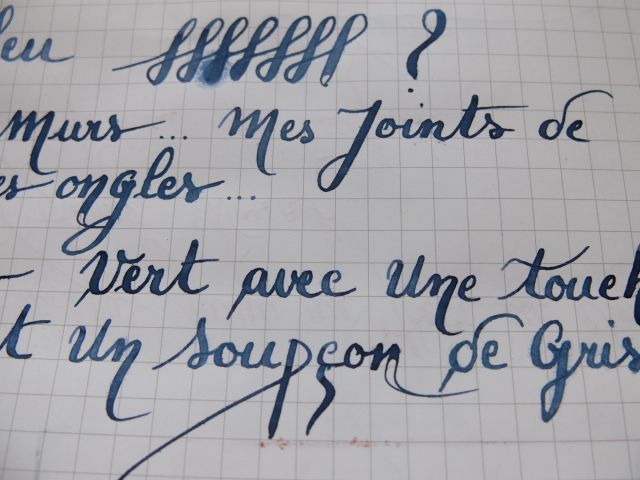 leu ?
Murs... Mes Joints de
es ongles...
- Vert avec Une touch
t Un soupçon de Gris